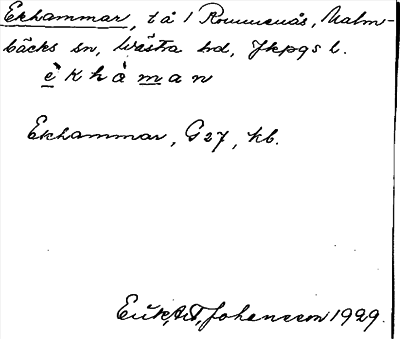 Ekhammar, t å 1 Rommenås, Malm-
bäcks sn, Västra hd, Jkpgs l.
è k h à m a n
Ekhammar, G 27, kb.
Johansson 1929.